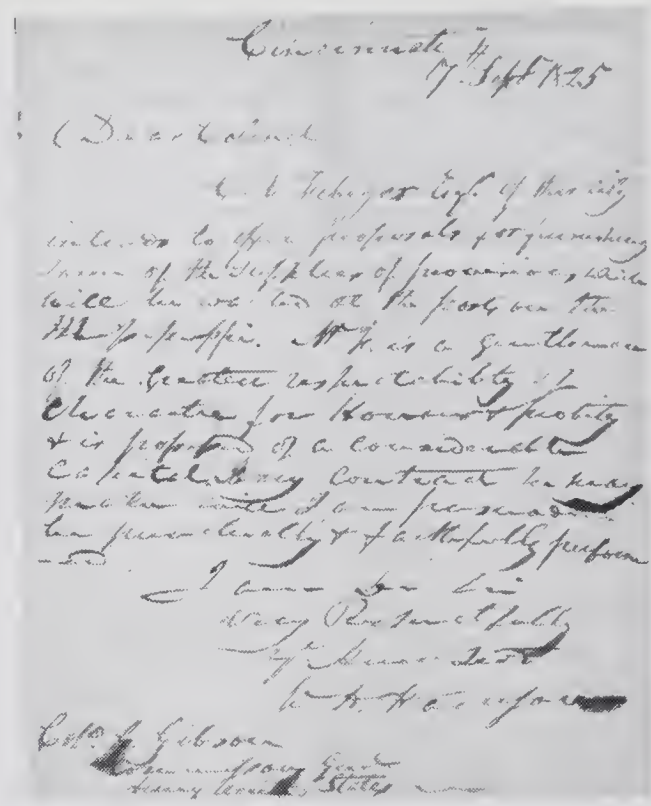 Cincinnati
17th Sept 1825
Dear Colonel
Esqr. of this city
intends to offer proposals for furnishing
some of the supplies of provisions which
will be wanted at the posts on the
Mississippi. Mr. is a Gentleman
of the Greatest respectability of
Character for Honour & probity
& is possessed of a considerable
Capital. Any Contract he may
enter into I am persuaded will
be punctually & faithfully perform
ed.
I am Dr Sir
Very Respectfully
yr Humble Servt
W. H. Harrison
Colo. G. Gibson
Commissary Genl
Army United States